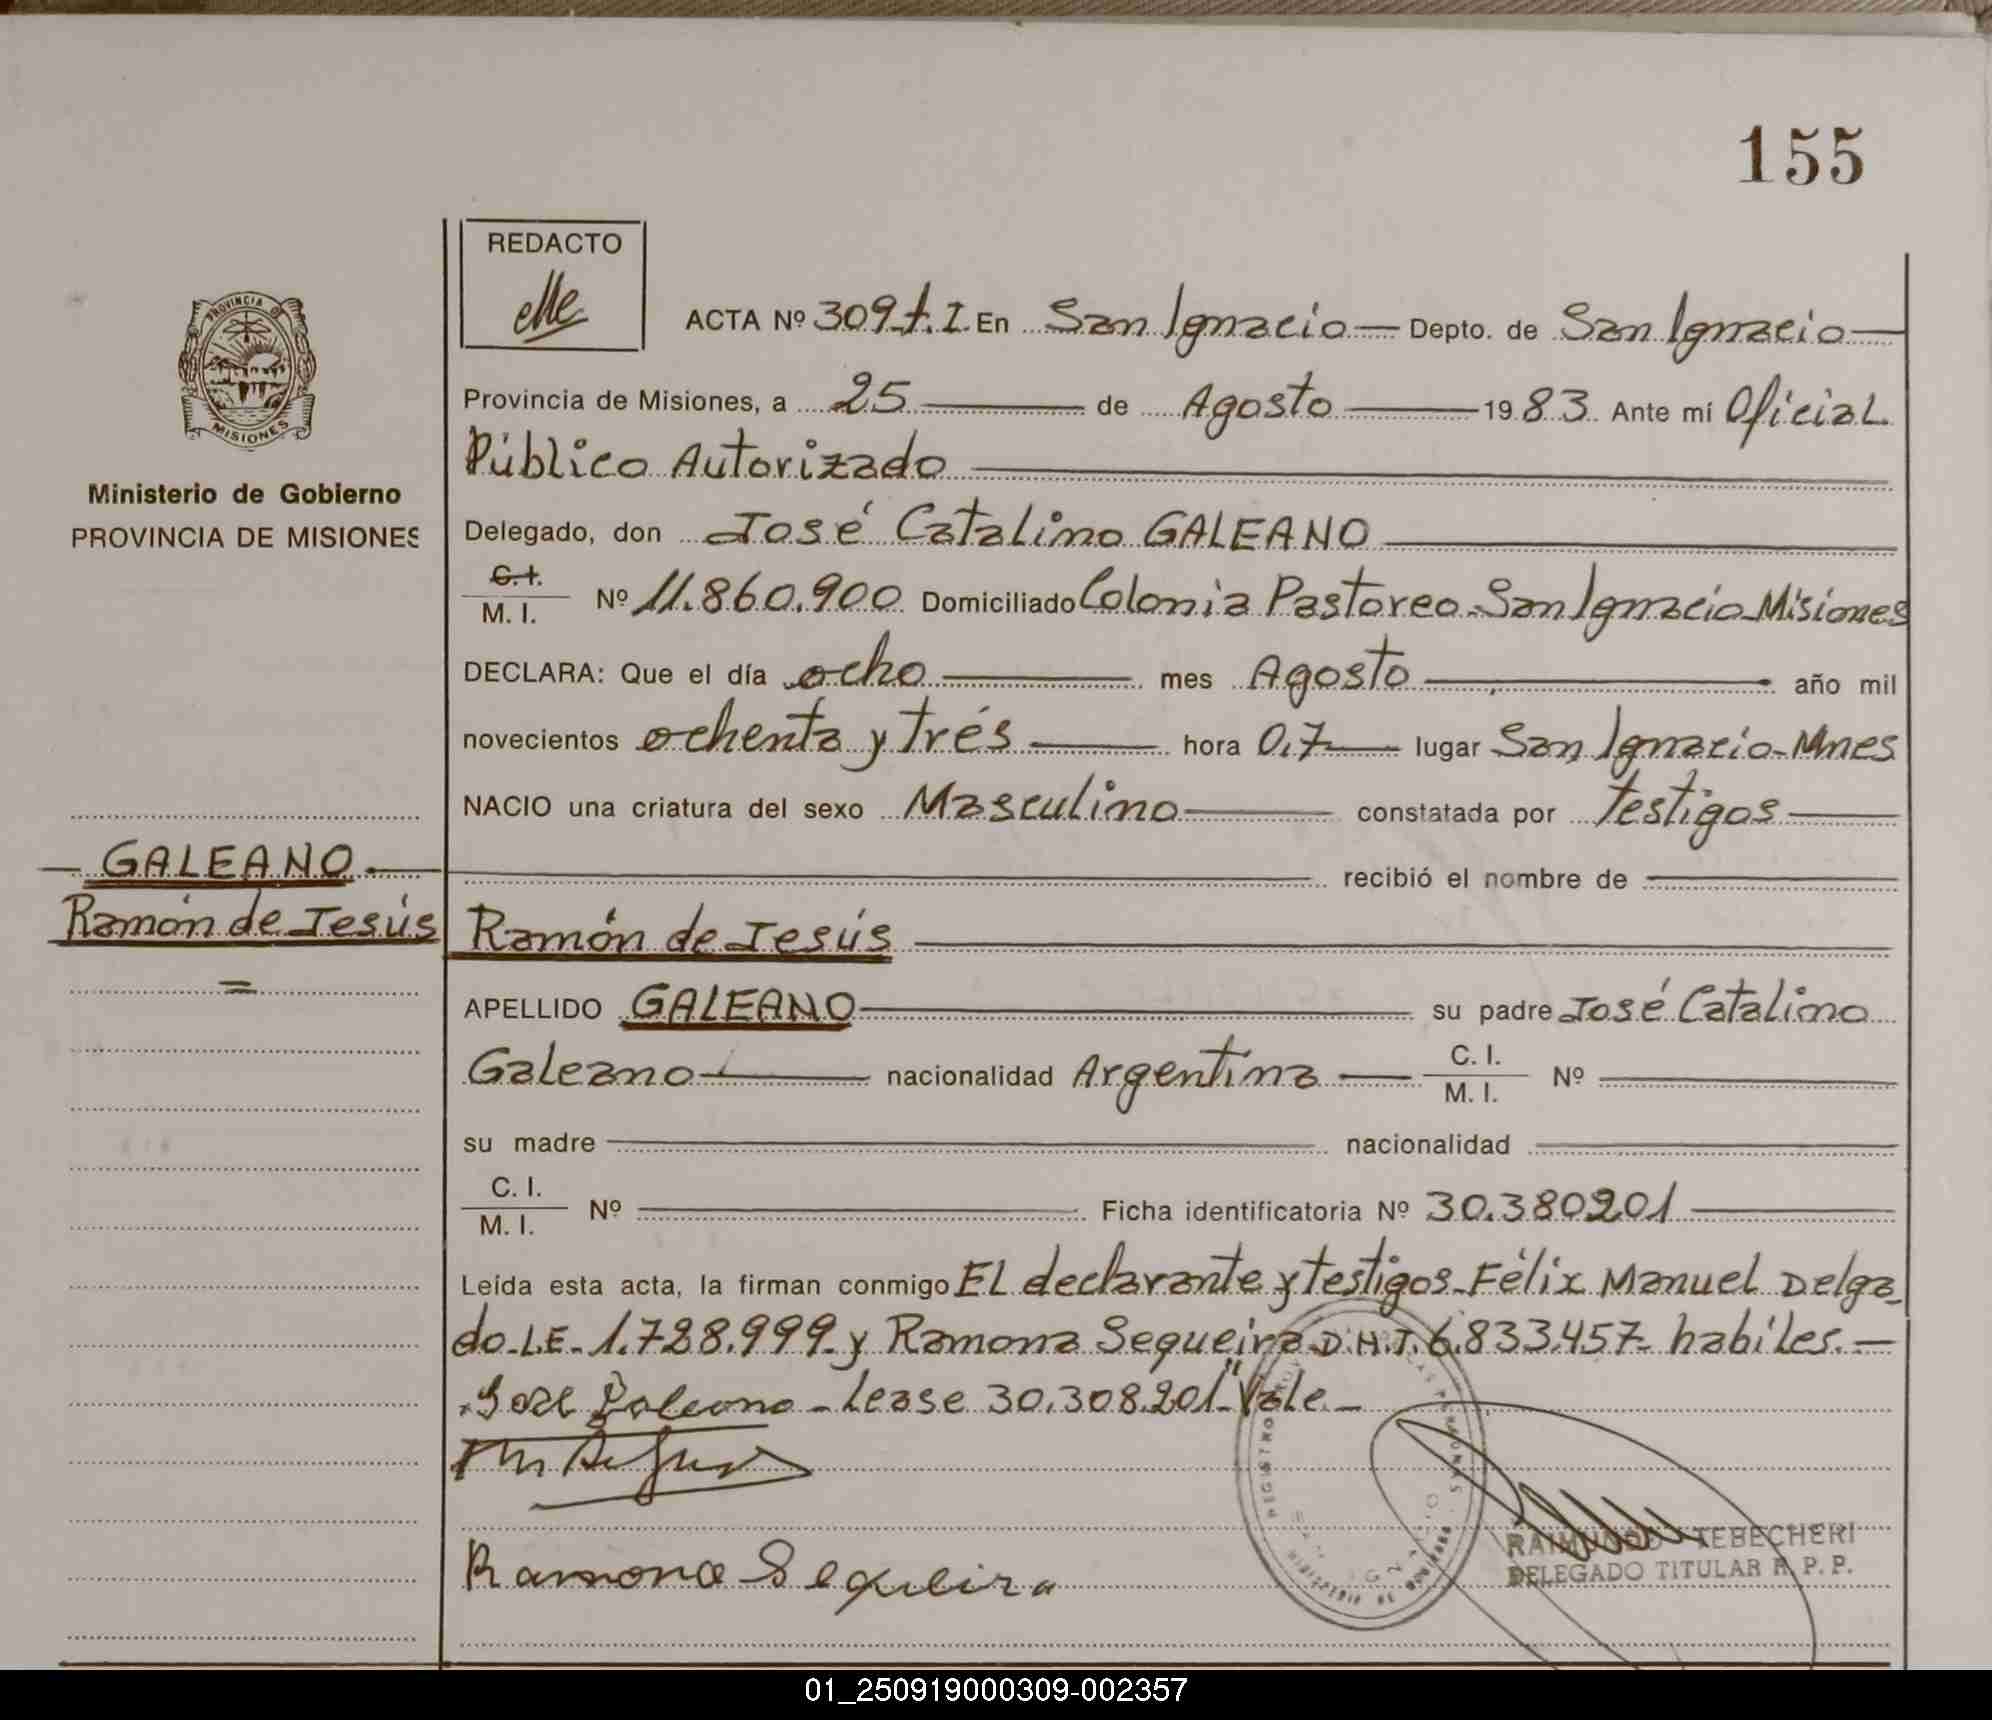 155
REDACTO
PROVINCIA DE
MISIONES
Ministerio de Gobierno
PROVINCIA DE MISIONES
ACTA Nº 309-t.I. En San Ignacio — Depto. de San Ignacio —
Provincia de Misiones, a 25 — de Agosto — 1983. Ante mí Oficial
Público Autorizado —
Delegado, don José Catalino GALEANO —
C.I.
M. I. Nº 11.860.900. Domiciliado Colonia Pastoreo-San Ignacio-Misiones
DECLARA: Que el día ocho — mes Agosto — año mil
novecientos ochenta y trés — hora 0.7 — lugar San Ignacio-Mnes
NACIO una criatura del sexo Masculino — constatada por testigos —
— recibió el nombre de —
— GALEANO. —
Ramón de Jesús
=
Ramón de Jesús —
APELLIDO GALEANO — su padre José Catalino
Galeano — nacionalidad Argentina — C. I. / M. I. Nº —
su madre — nacionalidad —
C. I.
M. I. Nº — Ficha identificatoria Nº 30.380201 —
Leída esta acta, la firman conmigo EL declarante y testigos-Félix Manuel Delga
do-L.E- 1.728.999- y Ramona Sequeira-D.N.I. 6.833.457- habiles. —
José Galeano - Lease 30.308.201" Vale. -
Ramona Sequeira
REGISTRO PROVINCIAL DE LAS PERSONAS
SAN IGNACIO
RAIMUNDO TEBECHERI
DELEGADO TITULAR R. P. P.
01_250919000309-002357